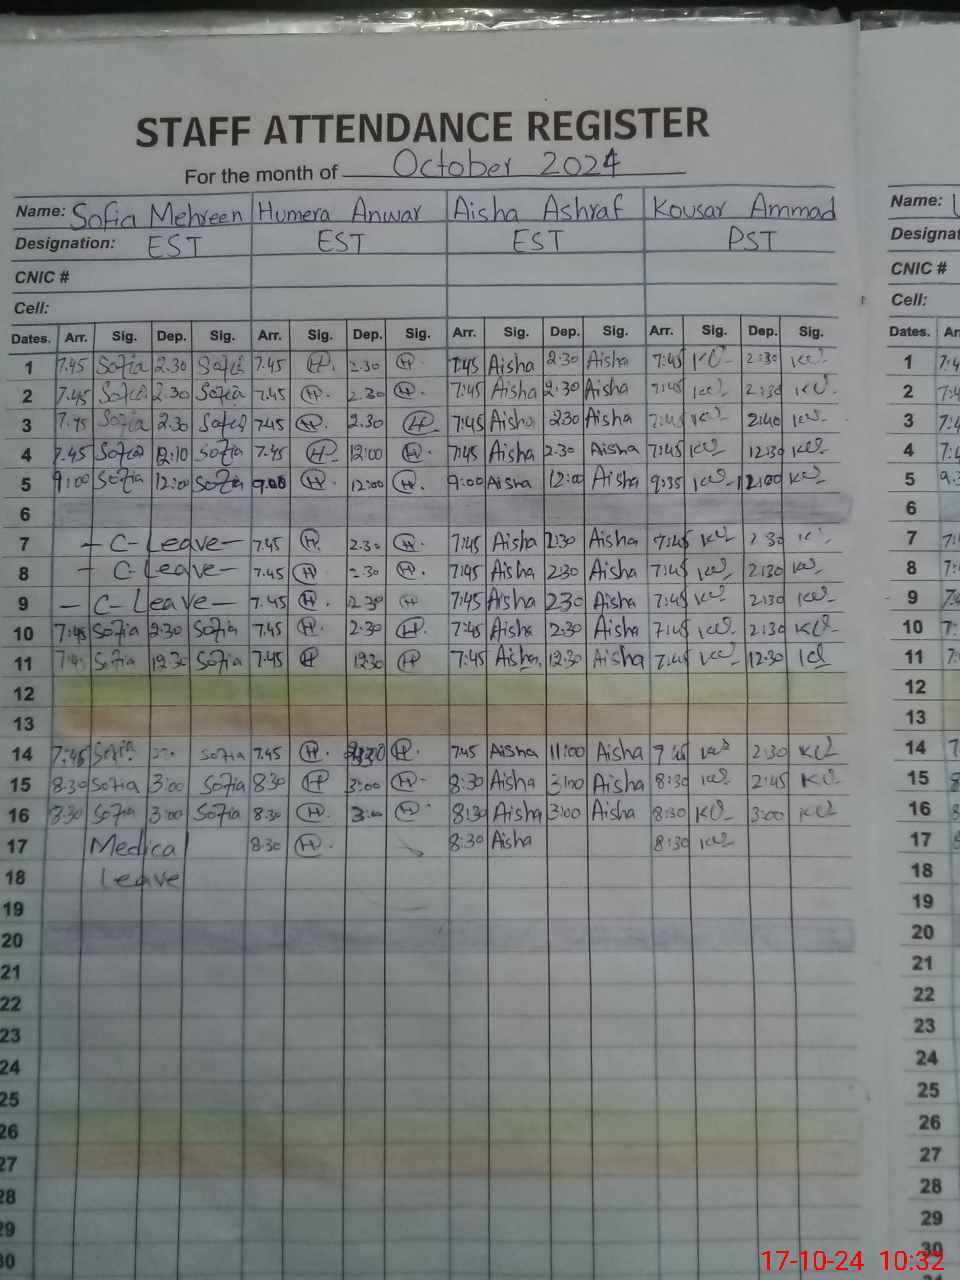 STAFF ATTENDANCE REGISTER
For the month of October 2024
Name: Sofia Mehreen Humera Anwar Aisha Ashraf Kousar Ammad Name:
Designation: EST EST EST PST Designat
CNIC # CNIC #
Cell: Cell:
Dates. Arr. Sig. Dep. Sig. Arr. Sig. Dep. Sig. Arr. Sig. Dep. Sig. Arr. Sig. Dep. Sig. Dates. Ar
1 7.45 Sofia 2.30 Sofia 7.45 H 2.30 H 7:45 Aisha 2:30 Aisha 7:45 2:30 1
2 7.45 Sofia 2.30 Sofia 7.45 H 2.30 H 7:45 Aisha 2:30 Aisha 7:45 2:30 2
3 7.45 Sofia 2.30 Sofia 7.45 H 2.30 H 7:45 Aisha 230 Aisha 7:45 2:40 3
4 7.45 Sofia 12:10 Sofia 7.45 H 12:00 H 7:45 Aisha 2.30 Aisha 7:45 12:30 4
5 9:00 Sofia 12:00 Sofia 9.00 H 12:00 H 9:00 Aisha 12:00 Aisha 9:35 12:00 5
6 6
7 - C-Leave - 7.45 H 2.30 H 7:45 Aisha 2:30 Aisha 7:45 2:30 7
8 - C-Leave - 7.45 H 2.30 H 7:45 Aisha 2:30 Aisha 7:45 2:30 8
9 - C-Leave - 7.45 H 2.30 H 7:45 Aisha 230 Aisha 7:45 2:30 9
10 7:45 Sofia 2:30 Sofia 7.45 H 2.30 H 7:45 Aisha 2.30 Aisha 7:45 2:30 10
11 7:45 Sofia 12:30 Sofia 7.45 H 12:30 H 7:45 Aisha 12.30 Aisha 7:45 12:30 11
12 12
13 13
14 7:45 Sofia Sofia 7.45 H H 7:45 Aisha 11:00 Aisha 7:45 2:30 14
15 8:30 Sofia 3:00 Sofia 8:30 H 3:00 H 8:30 Aisha 3:00 Aisha 8:30 2:45 15
16 8:30 Sofia 3:00 Sofia 8.30 H 3:00 H 8:30 Aisha 3:00 Aisha 8:30 3:00 16
17 Medical 8:30 H 8:30 Aisha 8:30 17
18 Leave 18
19 19
20 20
21 21
22 22
23 23
24 24
25 25
26 26
27 27
28 28
29 29
30 30
17-10-24 10:32